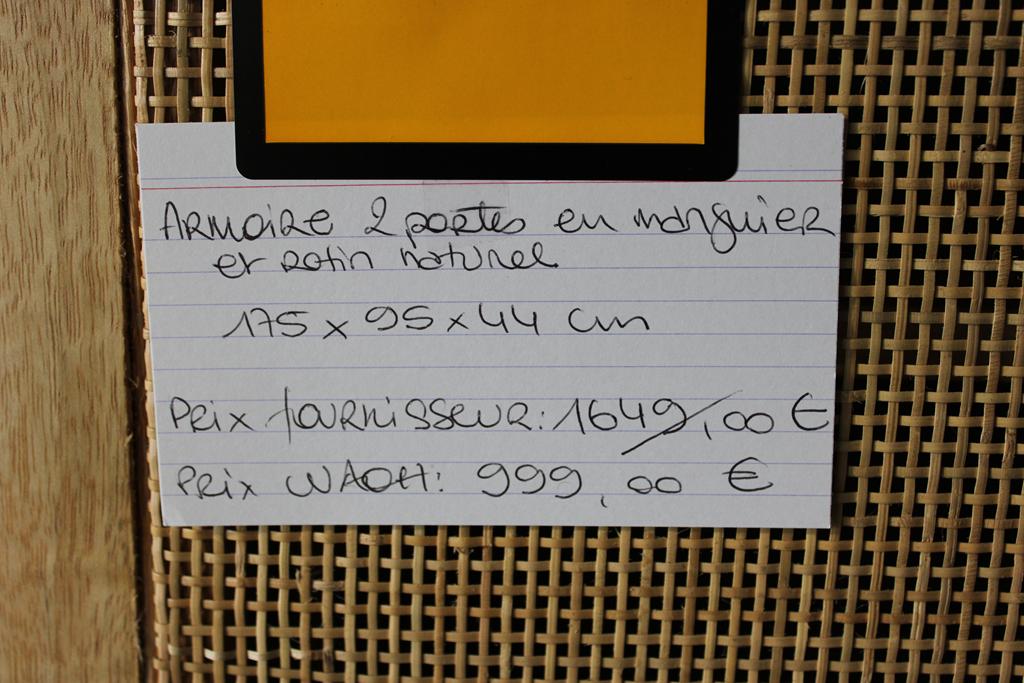 Armoire 2 portes en manguier
et rotin naturel
175 x 95 x 44 cm
Prix fournisseur: 1649,00 €
Prix WAOH: 999,00 €